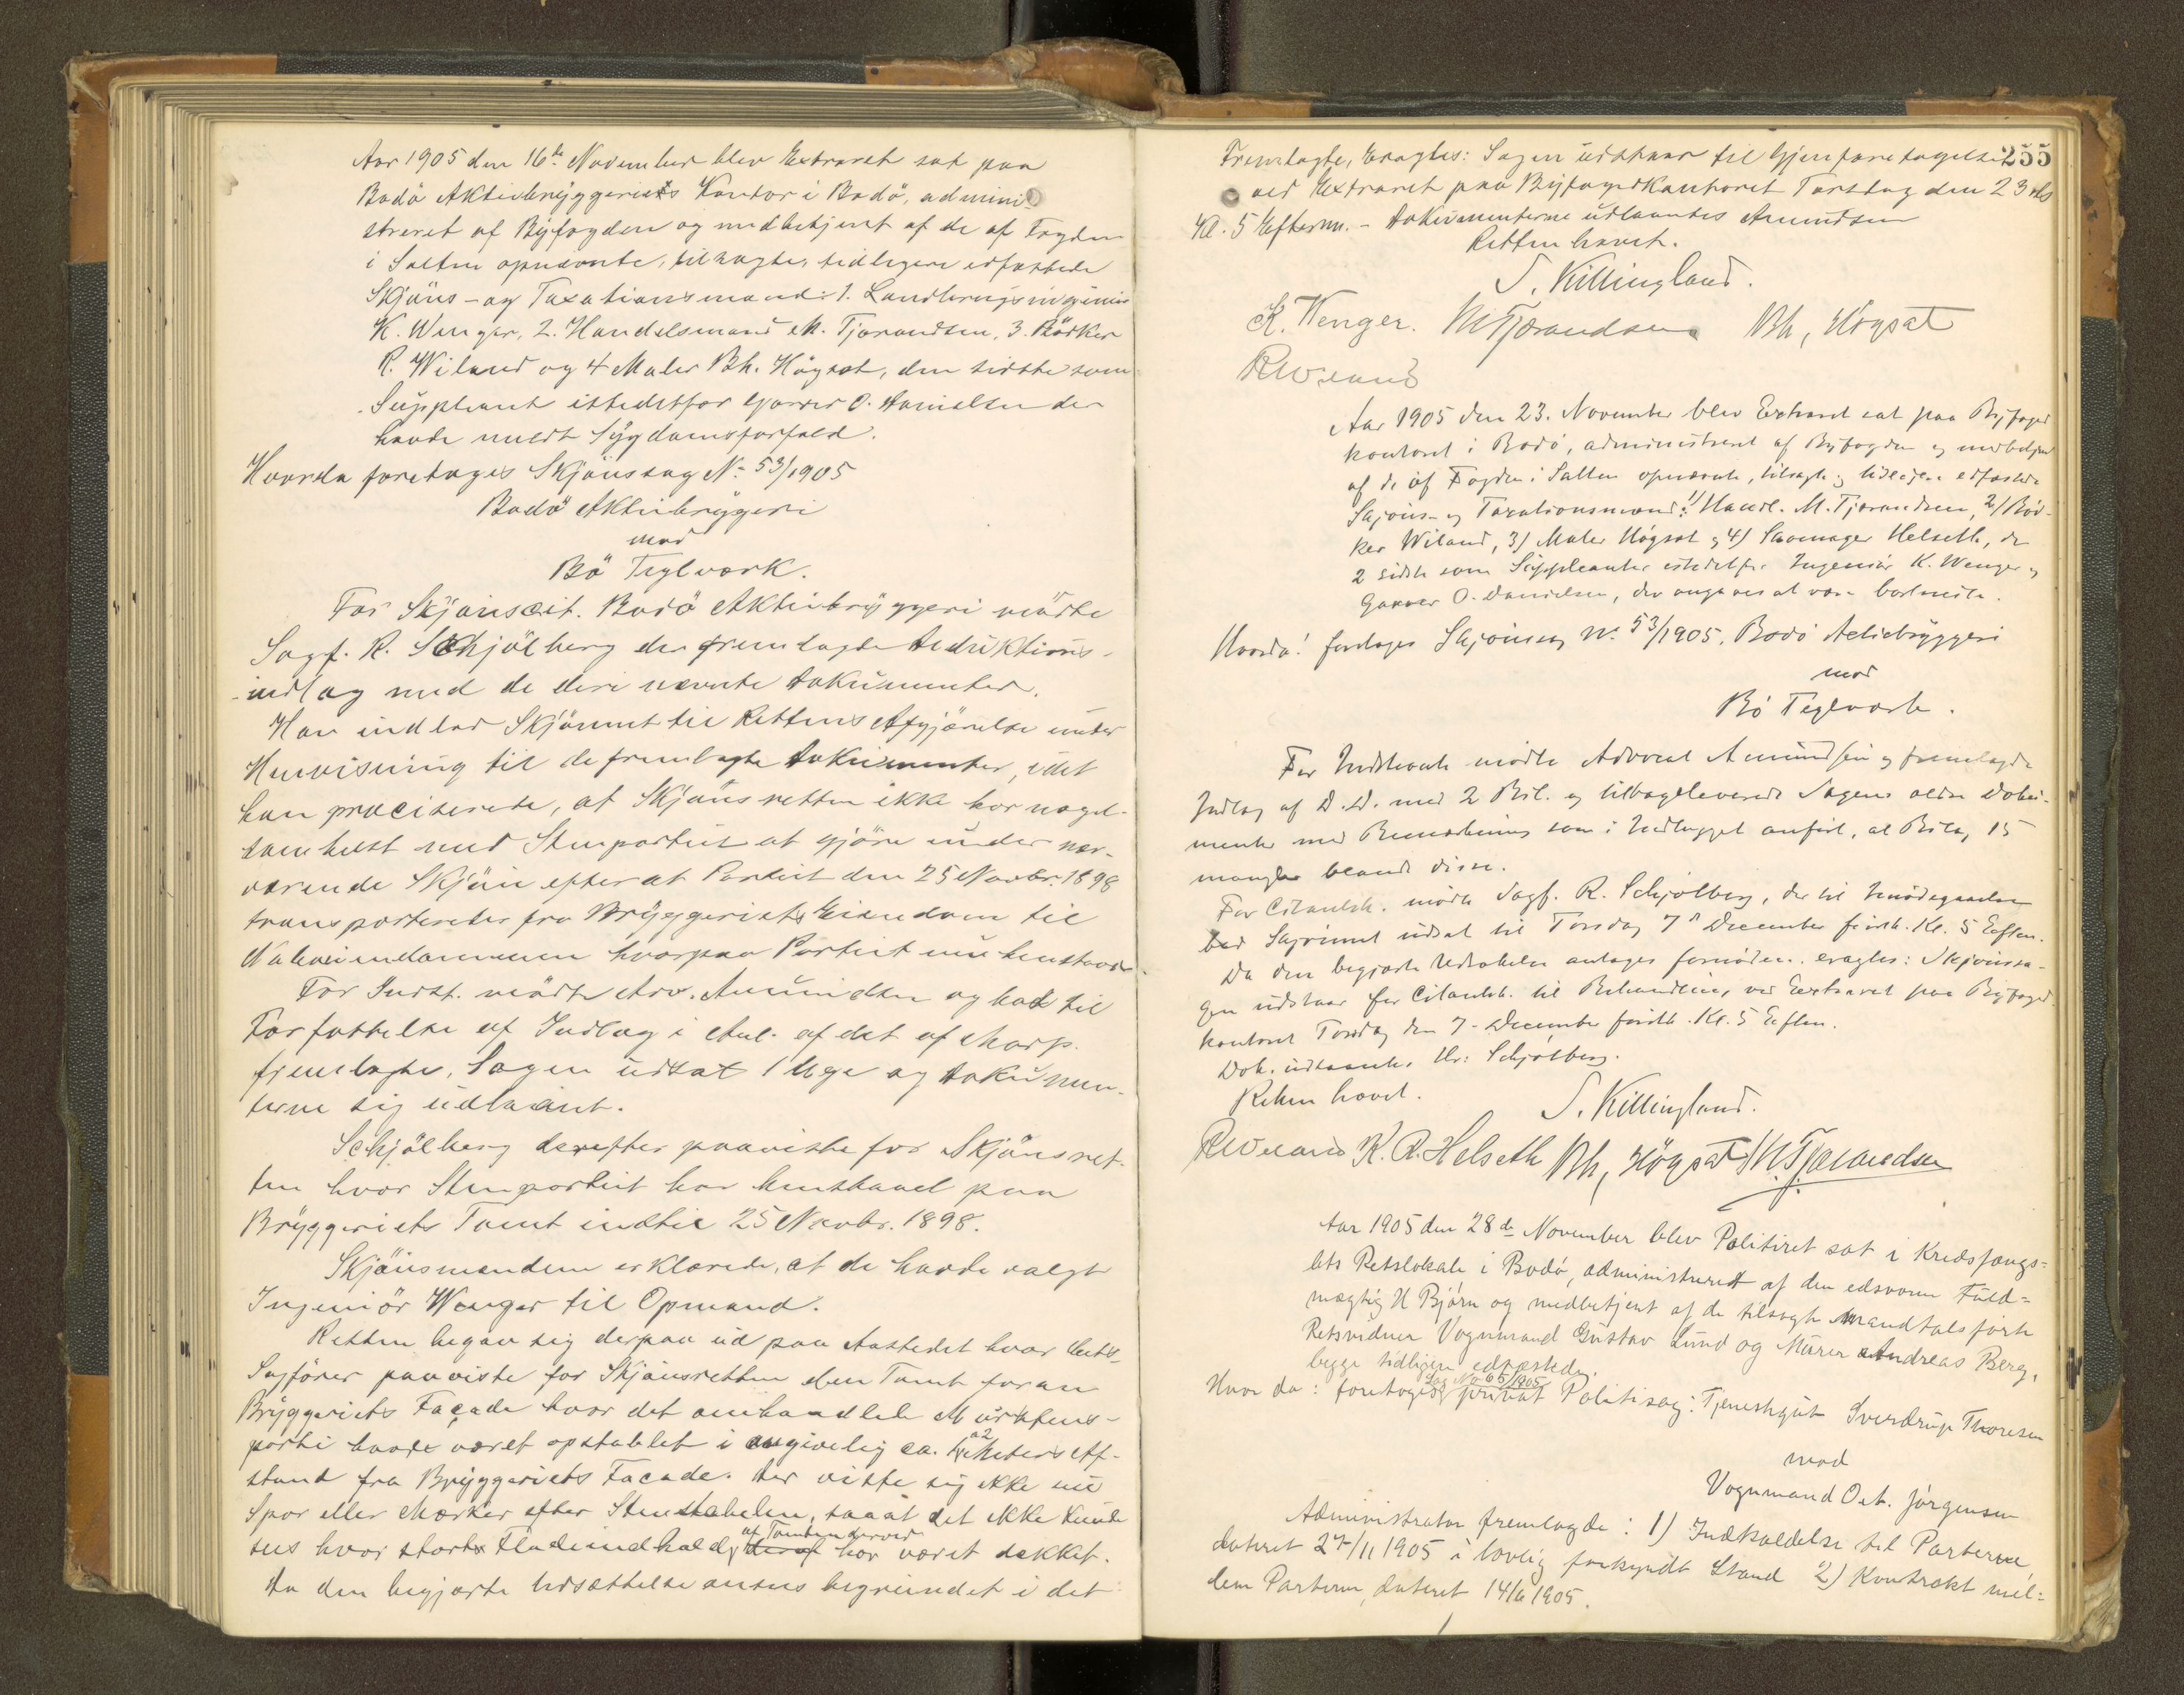 Aar 1905 den 16de November blev Extraret sat paa
Bodö Aktiebryggeriets Kontor i Bodö, admini-
streret af Byfogden og medbetjent af de af Fogden
i Salten opnævnte, tilsagte, tidligere edfæstede
Skjöns- og Taxationsmænd: 1. Landbrugsingeniör
K. Wenger, 2. Handelsmand M. Tjærandsen, 3. Bödker
R. Wiland og 4 Maler Bh. Högsæt, den sidste som
Suppleant istedetfor Garver O. Danielsen der
havde meldt Sygdomsforfald.
Hvorda foretages Skjönssag No 53/1905
Bodö Aktiebryggeri
mod
Bö Teglværk.
For Skjönscit. Bodö Aktiebryggeri mödte
Sagf. R. Schjölberg der fremlagde Deduktions-
indlæg med de deri nævnte Dokumenter.
Han indlod Skjönnet til Rettens Afgjörelse under
Henvisning til de fremlagte Dokumenter, idet
han præciserede, at Skjönsretten ikke har noget-
somhelst med Stenpartiet at gjöre under nær-
værende Skjön efterat Partiet den 25 Novbr. 1898
transporteredes fra Bryggeriets Eiendom til
Naboeiendommen hvorpaa Partiet nu henstaar.
For Indst. mödte Adv. Amundsen og bad til
Forfattelse af Indlæg i Anl. af det af Modp.
fremlagte, Sagen udsat 1 Uge og Dokumen-
terne sig udlaant.
Schjölberg derefter paaviste for Skjönsret-
ten hvor Stenpartiet har henstaaet paa
Bryggeriets Tomt indtil 25 Novbr. 1898.
Skjönsmændene erklærede, at de havde valgt
Ingeniör Wenger til Opmand.
Retten begav sig derpaa ud paa Aastedet hvor Cits
Sagförer paaviste for Skjönsretten den Tomt foran
Bryggeriets Façade hvor det omhandlede Murstens-
parti havde været opstablet i angivelig ca. 2 Meters Af-
stand fra Bryggeriets Facade. Der viste sig ikke nu
Spor eller Mærker efter Stenstabelen, saaat det ikke kunde
sees hvor stort Fladeindhold af Tomten derved har været dækket.
Da den begjærte Udsættelse ansees begrundet i det
255
Fremlagte, Eragtes: Sagen udstaar til Gjenforetagelse
ved Extraret paa Byfogedkontoret Torsdag den 23 ds
Kl. 5 Efterm. - Dokumenterne udlaantes Amundsen
Retten hævet.
S. Killingland.
K. Wenger. M Tjærandsen Bh, Högsæt
R Wiland
Aar 1905 den 23. November blev Extraret sat paa Byfoged
kontoret i Bodö, administreret af Byfogden og medbetjent
af de af Fogden i Salten opnævnte, tilsagte og tidligere edfæstede
Skjöns- og Taxationsmænd: 1/ Handl. M. Tjærandsen, 2/ Böd-
ker Wiland, 3/ Maler Högsæt og 4/ Skomager Helseth, de
2 sidste som Suppleanter istedetfor Ingeniör K. Wenger og
Garver O. Danielsen, der angaves at være bortreiste.
Hvorda! foretages Skjönssag No. 53/1905. Bodö Actiebryggeri
mod
Bö Teglværk.
For Indstevnte mödte Advocat Amundsen og fremlagde
Indlæg af D. D. med 2 Bil. og tilbageleverede Sagens ældre Doku-
menter med Bemærkning som i Indlægget anfört, at Bilag 15
mangler blandt disse.
For Citantsk. mödte Sagf. R. Schjölberg, der til Imödegaaelse
bad Skjönnet udsat til Torsdag 7de December förstk. Kl. 5 Eftm.
Da den begjærte Udsættelse antages fornöden, eragtes: Skjönssa-
gen udstaar for Citantsk. til Behandling ved Extraret paa Byfoged
kontoret Torsdag den 7- December förstk. Kl. 5 Eftm.
Dok. udlaantes Hr: Schjölberg.
Retten hævet.
S. Killingland.
R Wiland K. R. Helseth Bh, Högsæt M. Tjærandsen
Aar 1905 den 28de November blev Politiret sat i Kredsfængs-
lets Retslokale i Bodö, administreret af den edsvorne Fuld-
mægtig H Bjørn og medbetjent af de tilsagte mandtalsførte
Retsvidner Vognmand Gustav Lund og Murer Andreas Berg,
begge tidligere edfæstede.
Hvor da: foretoges Sag No 65/1905 privat Politisag: Tjenestegut Sverdrup Thoresen
mod
Vognmand Oct. Jørgensen
Administrator fremlagde: 1) Indkaldelse til Parterne
dateret 27/11 1905 i lovlig forkyndt Stand 2) Kontrakt mel-
lem Parterne, dateret 14/6 1905.